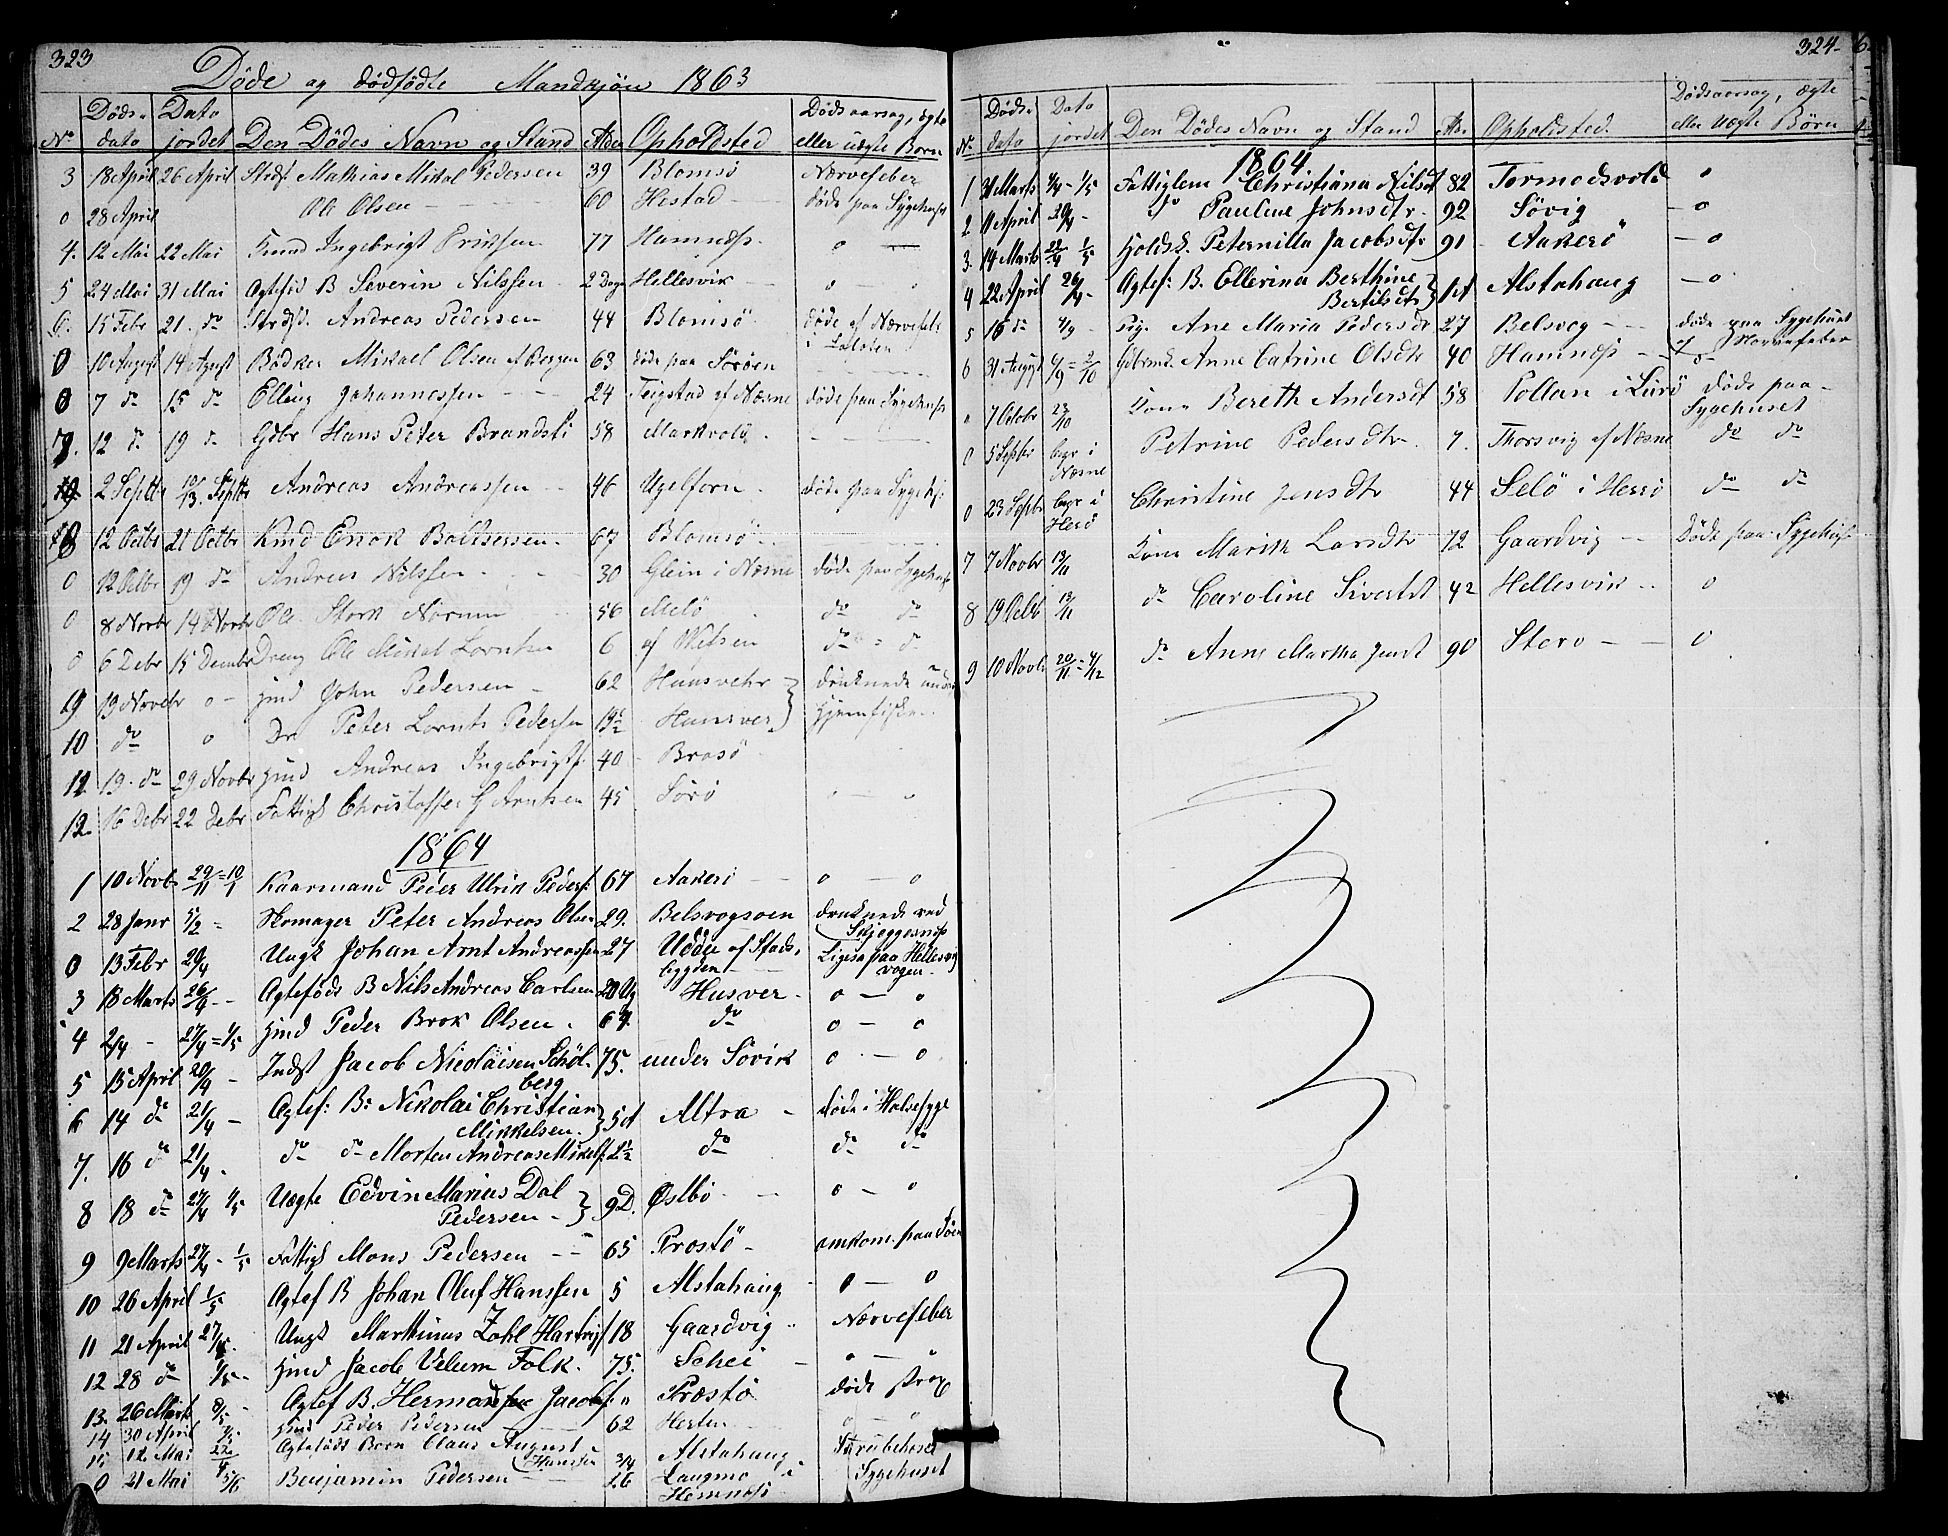 323
Døde og dødfødte Mandkjøn 1863
No Døds- dato Dato jordet Den Dødes Navn og Stand Alder Opholdsted Dødsaarsag, ægte eller uægte Børn
3 18 April 26 April Mathias Mikal Pedersen 39 Blomsö Nærvefeber
0 28 April Ole Olsen 60 Hestad døde paa Sygehuset
4. 12 Mai 22 Mai Knud Ingebrigt Eriksen 77 Hamnæs o
5 24 Mai 31 Mai Ægtefød B Severin Nilssen 2 Dage Hellesvik o o
6. 15 Febr 21. do Andreas Pedersen 44 Blomsö døde af Nærvefeb.
i Lofoten
0 10 August 14 August Bødker Mikael Olsen af Bergen 63 døde paa Söröen
0 7 do 15 do Elling Johannessen 24 Teigstad af Næsne døde paa Sygehuset
7. 12 do 19 do Gdbr Hans Peter Brandsti 58 Markvold
2 Septbr 10/13. Septbr Andreas Andreassen 46 Ugelforn døde paa Sygehs.
8 12 Octbr 21 Octbr Kmd Enok Baltsersen 67 Blomsö
0 12 Octbr 19 do Andreas Nilssen 30 Glein i Næsne døde paa Sygehuset
0 8 Novbr 14 Novbr Ole Stork 56 Melö do do
0 6 Debr 15 Decmbr Dreng Ole Mikal Lorntsen 6 af Vefsen do do
9 13 Novebr o John Pedersen 62 Huusvehr druknede under
10 do o Dr Peter Lornts Pedersen 13½ Husevær Hjemfisken
11. 19. do 29 Novbr Andreas Ingebrigts. 40 Brasö
12. 16 Debr 22 Debr Fattigl Christoffer G Arntsen 45 Sörö
1864
1 10 Novb 29/11=10/1 Kaarmand Peder Ulrik Peders: 67 Aakerö o o
2 28 Janr 5/2 = Skomager Peter Andreas Olsen 29. Belsvogsoen druknede ved
Skjeggesnes
0 13 Febr 29/4 Ungk Johan Arnt Andreassen 27 Uddu af Stads- Ligesaa paa Hellesvig
bygden vogen
3 18 Marts 26/4 - Ægtefødt B Nils Andreas Carlsen 20 Ug Husver o - o
4 2/4 - 27/4=1/5 Peder Brok Olsen 67. do o - o
5 15 April 20/4 - Indst Jacob Nicolaisen Schöl- 75. under Sövik o - o
berg
6 14 do 21/4 - Ægtef: B: Nikolai Christian
Mikkelsen. 5 A Altra døde i Halsesyge
7. 16 do 21/4 - do do Morten Andreas Mikels: 2½ do do do
8 18 do 27/4 1/5 Uægte Edvin Marius Dal
Pedersen 9 D. Østbö o - o
9 9 Marts 27/4 - 1/5 Fattigl Mons Pedersen 65 Prostö omkom. paa Søen
10 26 April 1/5 Ægtef B Johan Oluf Hanssen 5 Alstahaug o - o
11 21 April 27/4. Ungk Martinus Zahl Hartvigs 18 Gaardvig Nærvefeber
12 28 do 1/5 - Jacob Velum Falk. 75. Schei o
13. 26 Marts 8/5 Ægtef B. Herman Jacobs. " Præstö døde strax
14 30 April Peder Pedersen 62 Herten o o
15 12 Mai 22/5 Ægtefødt Barn Claus August
Hansen 3/4 Alstahaug Strubehoste
0 21 Mai 5/6 Benjamin Pedersen 26 Langmo i Sygehuset
Hemnæs
324
No Døds- dato Dato jordet Den Dødes Navn og Stand Alder Opholdsted. Dødsaarsag, ægte eller Uægte Børn
1864
1 31 Marts 4/4 - 1/5 Fattiglem Christiana Nilsdt 82 Tormodsvold o
2 11 April 20/4 - do Pauline Johnsdtr. 92 Sövig - o
3. 14 Marts 24/4 1/5 Peternilla Jacobsdtr 91 Aakerö - o
4 22 April 26/4 - Ægtef: B. Ellerina Berthine
Bertilsdtr 1 A Alstahaug - o
5 15 do 4/9 - Pige Ane Maria Pedersdtr 27 Belsvog døde paa Sygehuset
af Nærvefeber
6 31 August 4/9 = 2/10 Anne Catrine Olsdtr 40 Hamnæs
" 7 Octobr 23/10 Kone Bereth Andersdt 58 Pollan i Lurö døde paa
Sygehuset
0 5 Septbr begr i
Næsne Petrine Pedersdtr. 7. Thorsvig af Næsne do do
0 23 Septbr begr i
Herö Christine Jensdtr 44 Selö i Herrö do do
7 7 Novbr 13/11 Kone Marith Larsdtr 72 Gaardvig Døde paa Sygehuset
8 19 Octb 13/11 do Caroline Sivertsdt 42 Hellesvik o
9 10 Novb 20/11=4/12 do Anne Martha Jensdt 90 Storo o